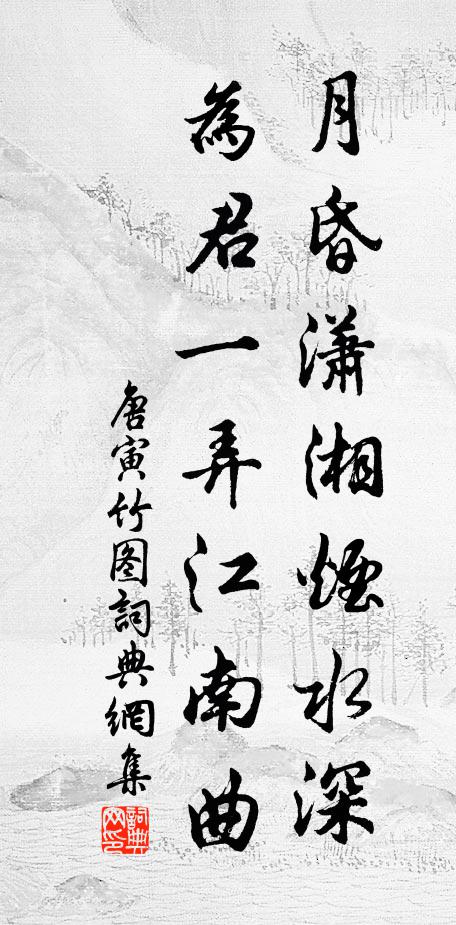 月昏瀟湘煙水深
為君一弄江南曲
唐寅竹图詞典網集
詞典网印